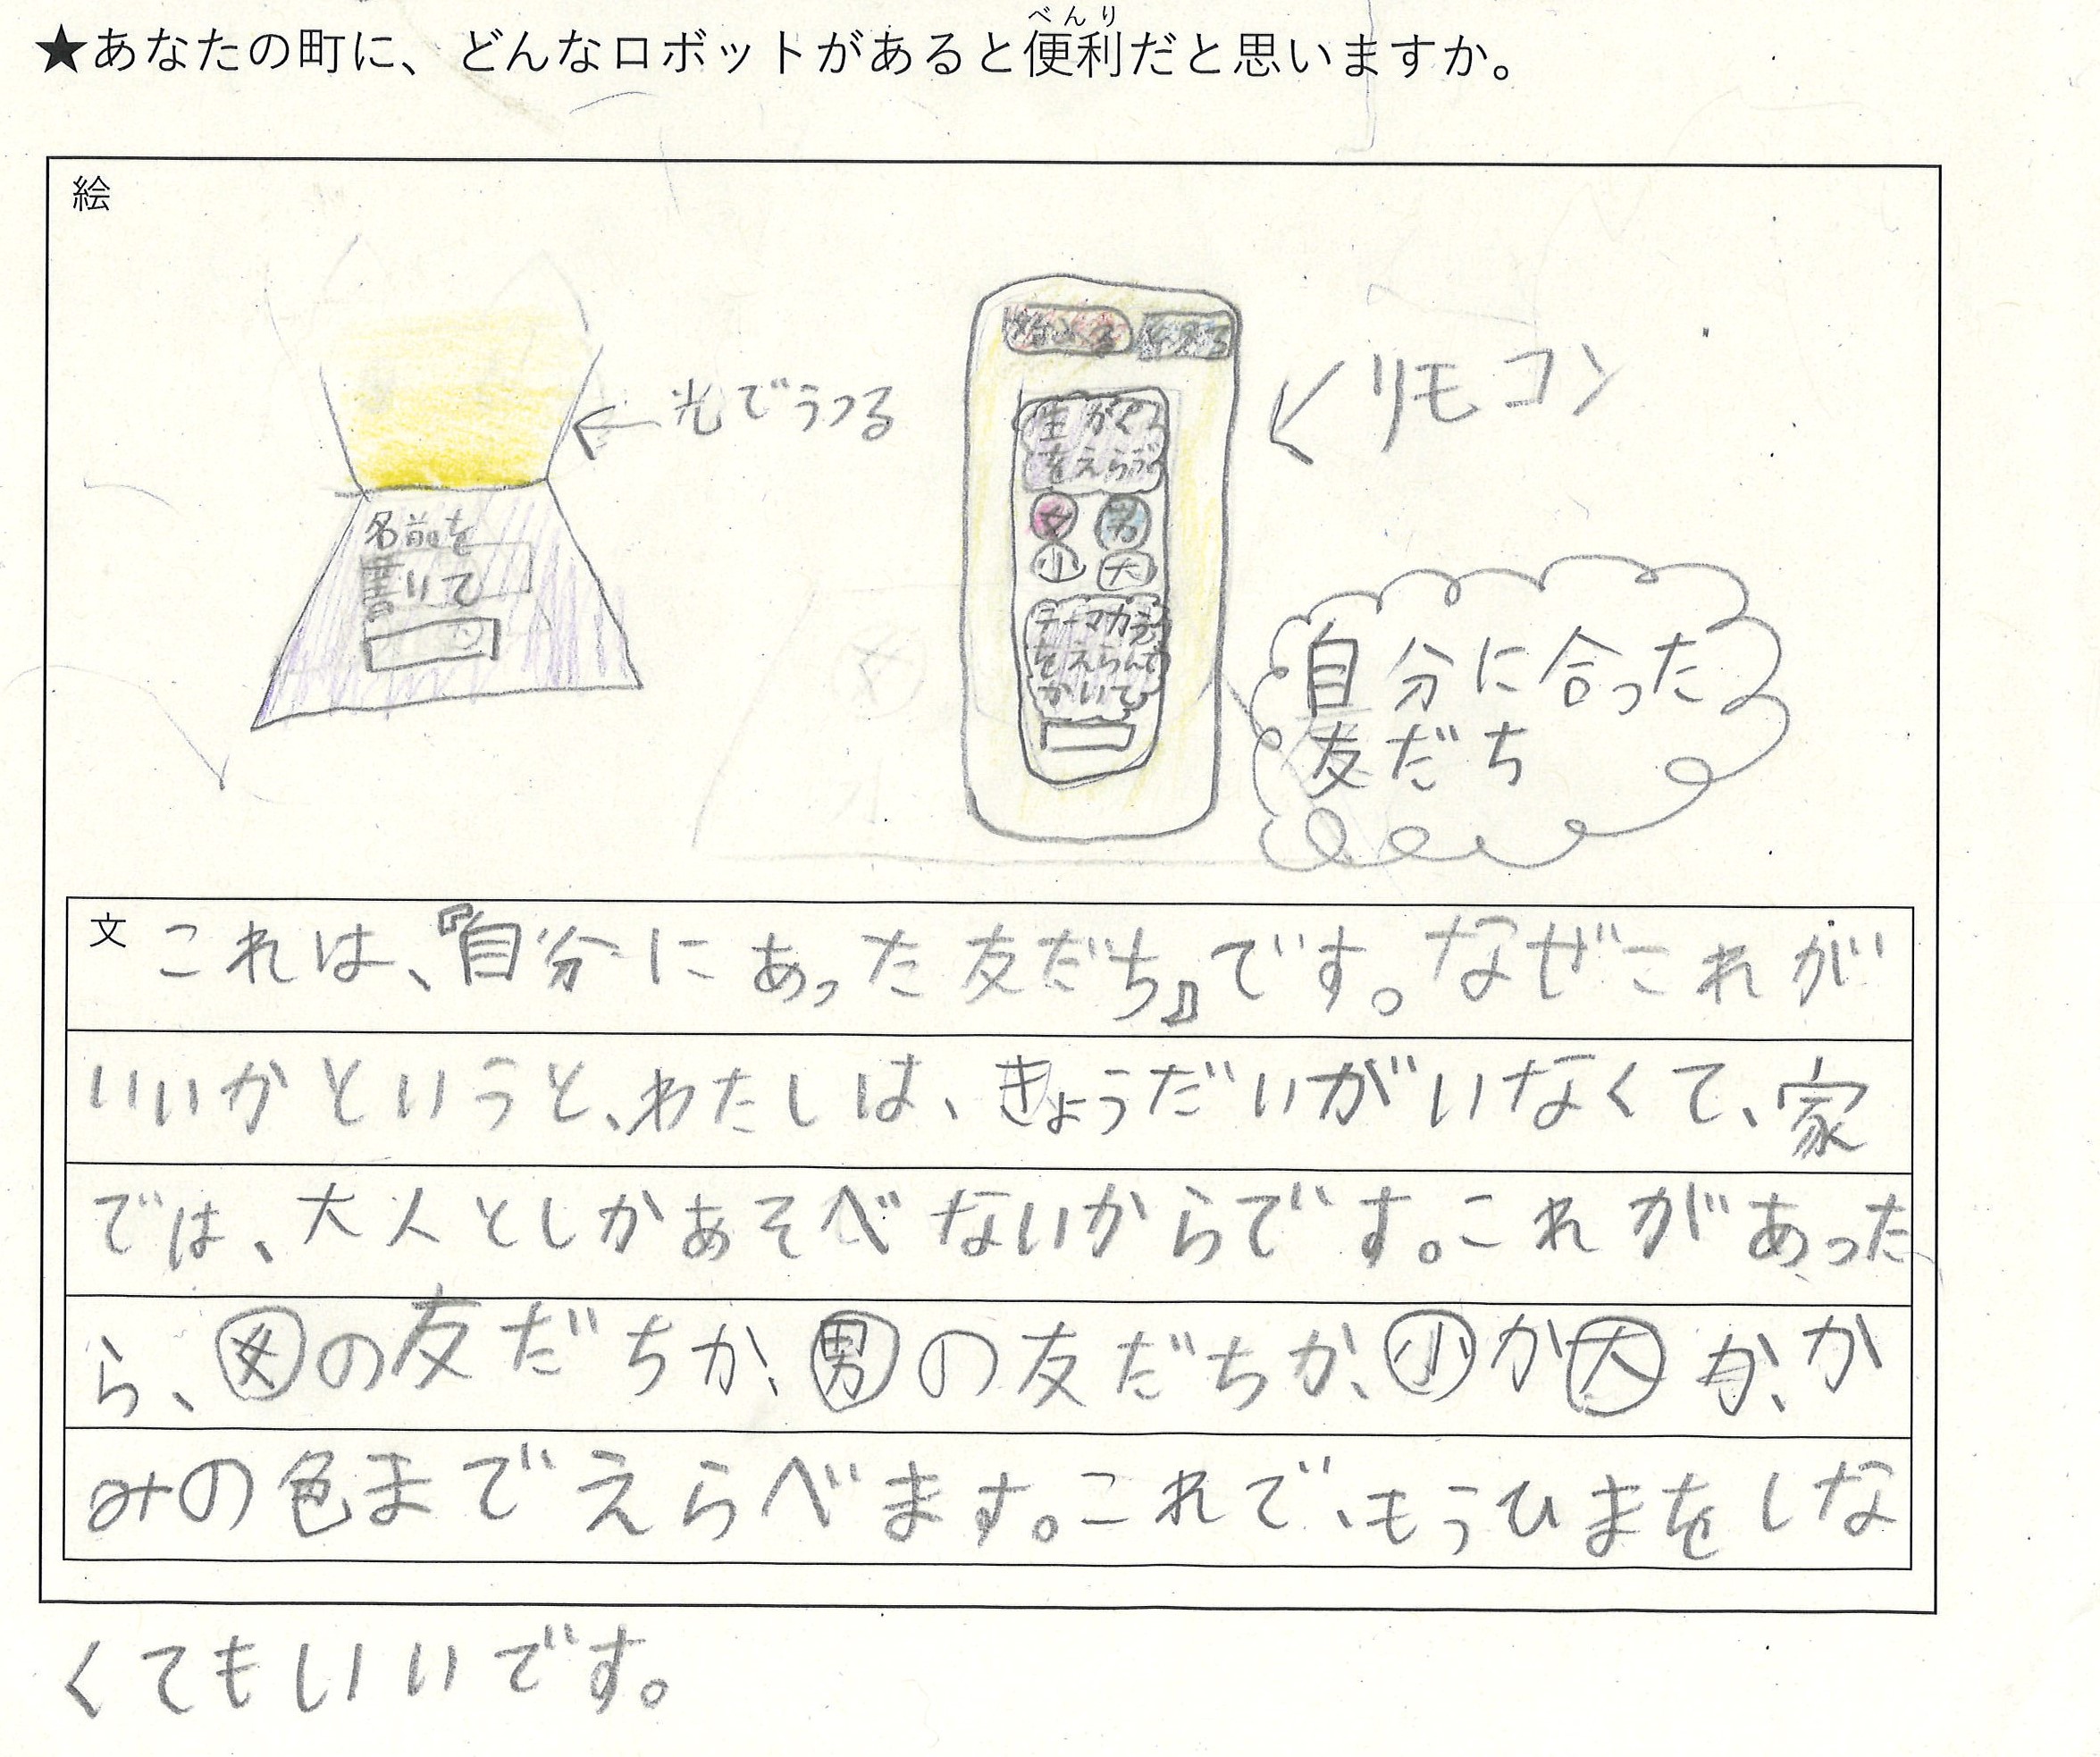 べんり
★あなたの町に、どんなロボットがあると便利だと思いますか。
絵
光でうつる
名前を
書いて
リモコン
女 男
小 大
自分に合った
友だち
文 これは、『自分にあった友だち』です。なぜこれが
いいかというと、わたしは、きょうだいがいなくて、家
では、大人としかあそべないからです。これがあった
ら、女の友だちか、男の友だちか、小か大か、か
みの色までえらべます。これで、もうひまをしな
くてもいいです。